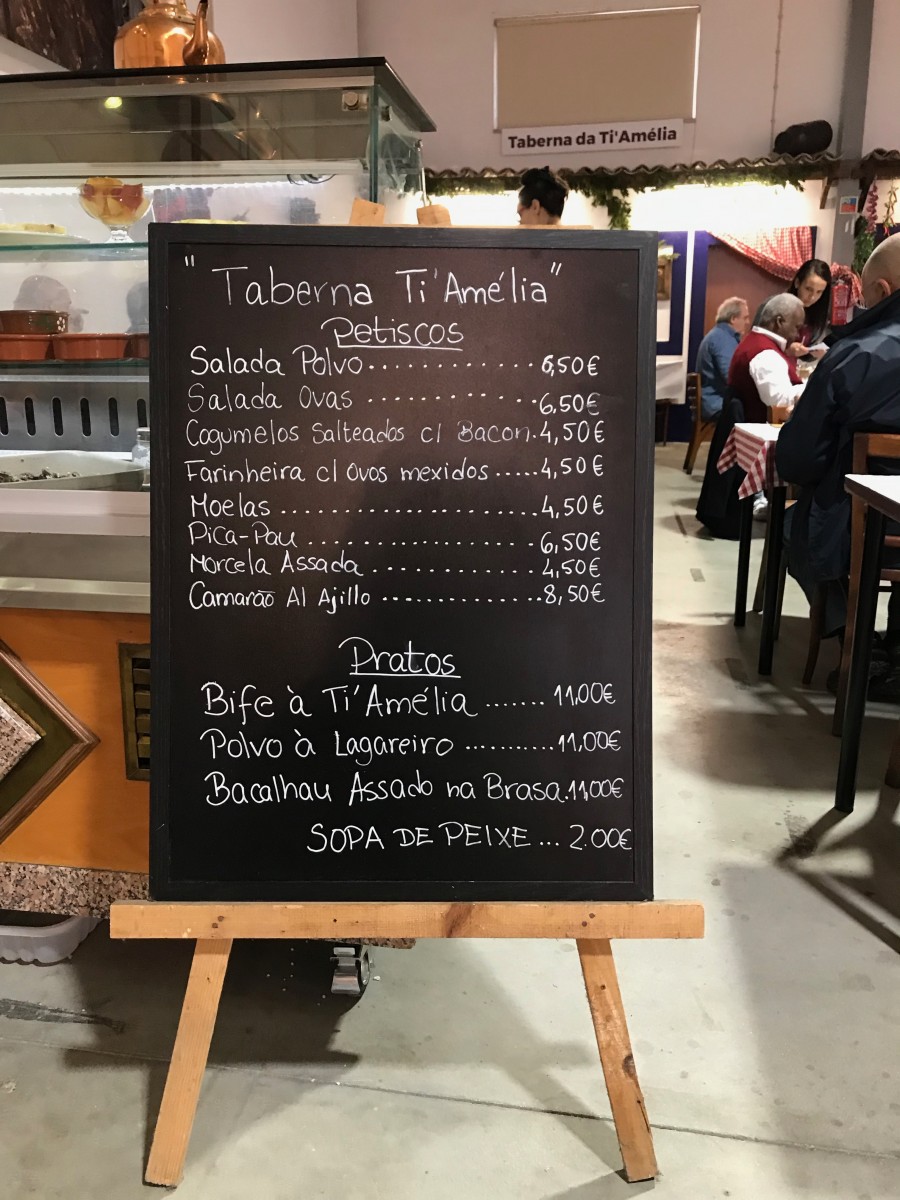 Taberna da Ti'Amélia
"Taberna Ti'Amélia"
Petiscos
Salada Polvo.............6,50€
Salada Ovas .............6,50€
Cogumelos Salteados c/ Bacon.4,50€
Farinheira c/ Ovos mexidos .....4,50€
Moelas ......................4,50€
Pica-Pau ...................6,50€
Morcela Assada .............4,50€
Camarão Al Ajillo .............8,50€
Pratos
Bife à Ti'Amélia ....... 11,00€
Polvo à Lagareiro ..........11,00€
Bacalhau Assado na Brasa.11,00€
SOPA DE PEIXE ... 2.00€